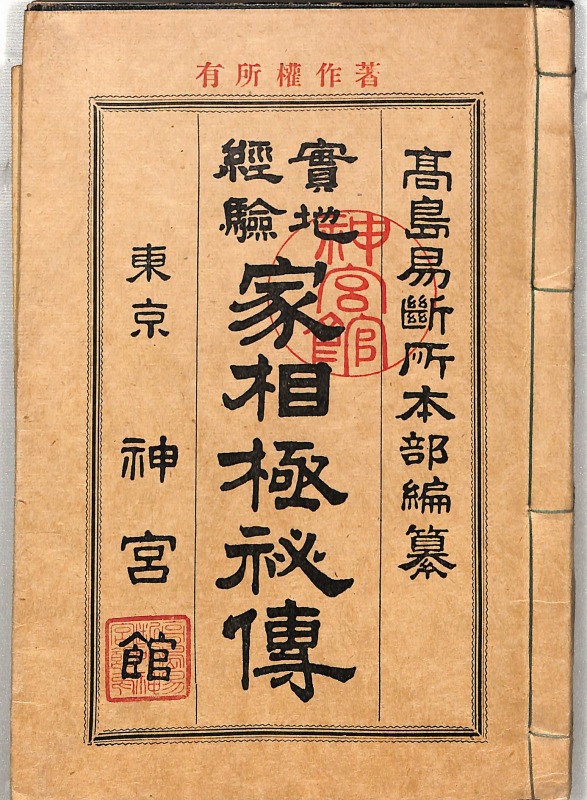 著作權所有
髙島易斷所本部編纂
實地
經驗
家相極祕傳
神宮館
東京 神宮館